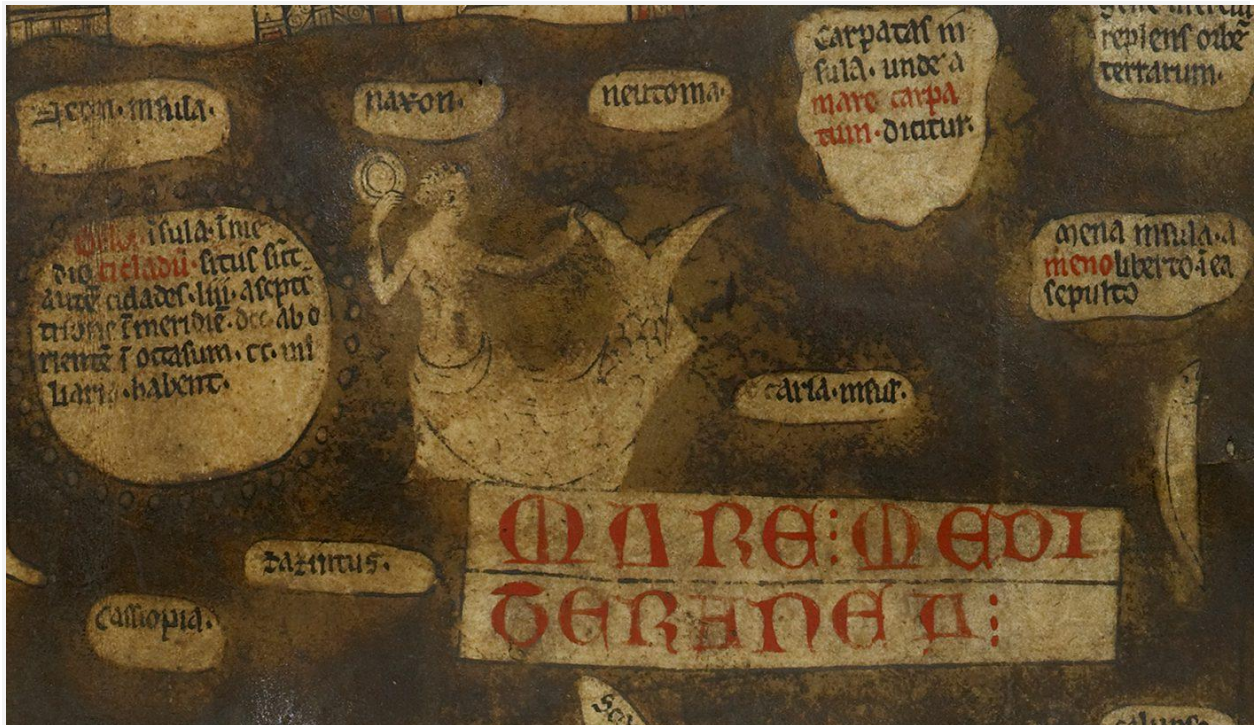 insula.
naxon.
neutoma.
Carpatas in
sula. unde a
mare carpa
tum. dicitur.
replens orbē
terrarum.
insula. ī me
dio cicladū. situs sūt
autē ciclades. liii. a septē
trione ī meridiē. ab o
rientē ī occasum. cc. mi
liaria. habent.
mena insula. a
meno liberto. i ea
sepulto
caria. insul.
MARE: MEDI
TERANEA:
zazintus.
Cassiopia.